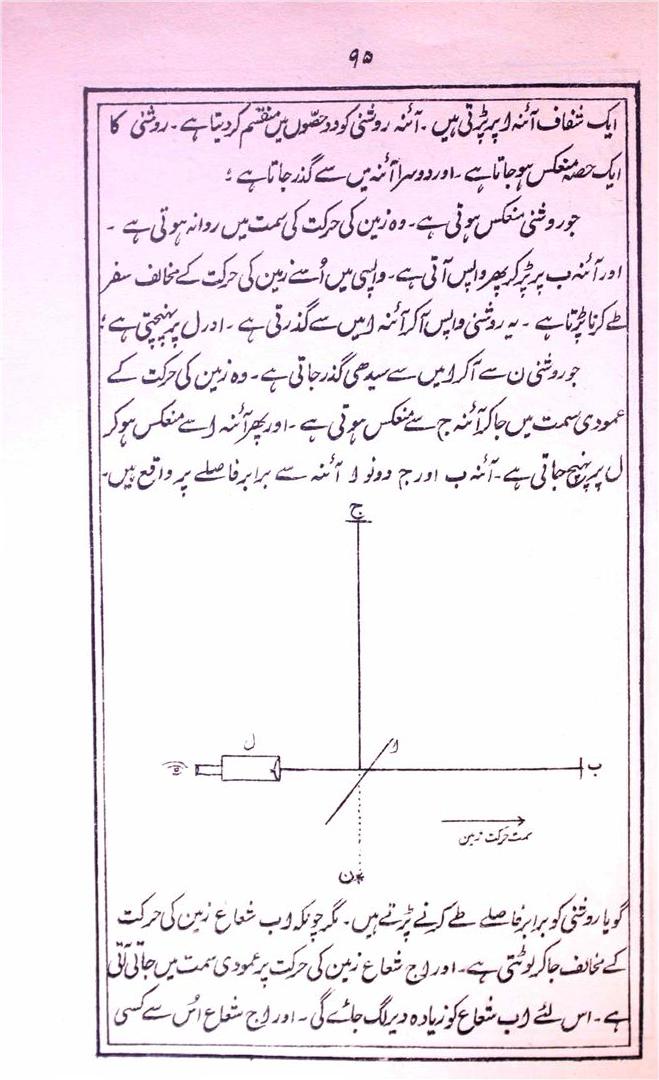 ۹۵
ایک شفاف آئنہ ا پر پڑتی ہیں ۔ آئنہ روشنی کو دو حصّوں میں منقسم کر دیتا ہے ۔ روشنی کا
ایک حصہ منعکس ہو جاتا ہے ۔ اور دوسرا آئنہ میں سے گذر جاتا ہے ؛
جو روشنی منعکس ہوتی ہے ۔ وہ زمین کی حرکت کی سمت میں روانہ ہوتی ہے ۔
اور آئنہ ب پر پڑ کر پھر واپس آتی ہے ۔ واپسی میں اُسے زمین کی حرکت کے مخالف سفر
طے کرنا پڑتا ہے ۔ یہ روشنی واپس آکر آئنہ ا میں سے گذرتی ہے ۔ اور ل پر پہنچتی ہے ؛
جو روشنی ن سے آکر ا میں سے سیدھی گذر جاتی ہے ۔ وہ زمین کی حرکت کے
عمودی سمت میں جا کر آئنہ ج سے منعکس ہوتی ہے ۔ اور پھر آئنہ ا سے منعکس ہو کر
ل پر پہنچ جاتی ہے ۔ آئنہ ب اور ج دونو ا آئنہ سے برابر فاصلے پر واقع ہیں ۔
ج
ل
ا
ب
سمت حرکت زمین
ن
گویا روشنی کو برابر فاصلے طے کرنے پڑتے ہیں ۔ مگر چونکہ ا ب شعاع زمین کی حرکت
کے مخالف جا کر لوٹتی ہے ۔ اور ا ج شعاع زمین کی حرکت پر عمودی سمت میں جاتی آتی
ہے ۔ اس لئے ا ب شعاع کو زیادہ دیر لگ جائے گی ۔ اور ا ج شعاع اُس سے کسی